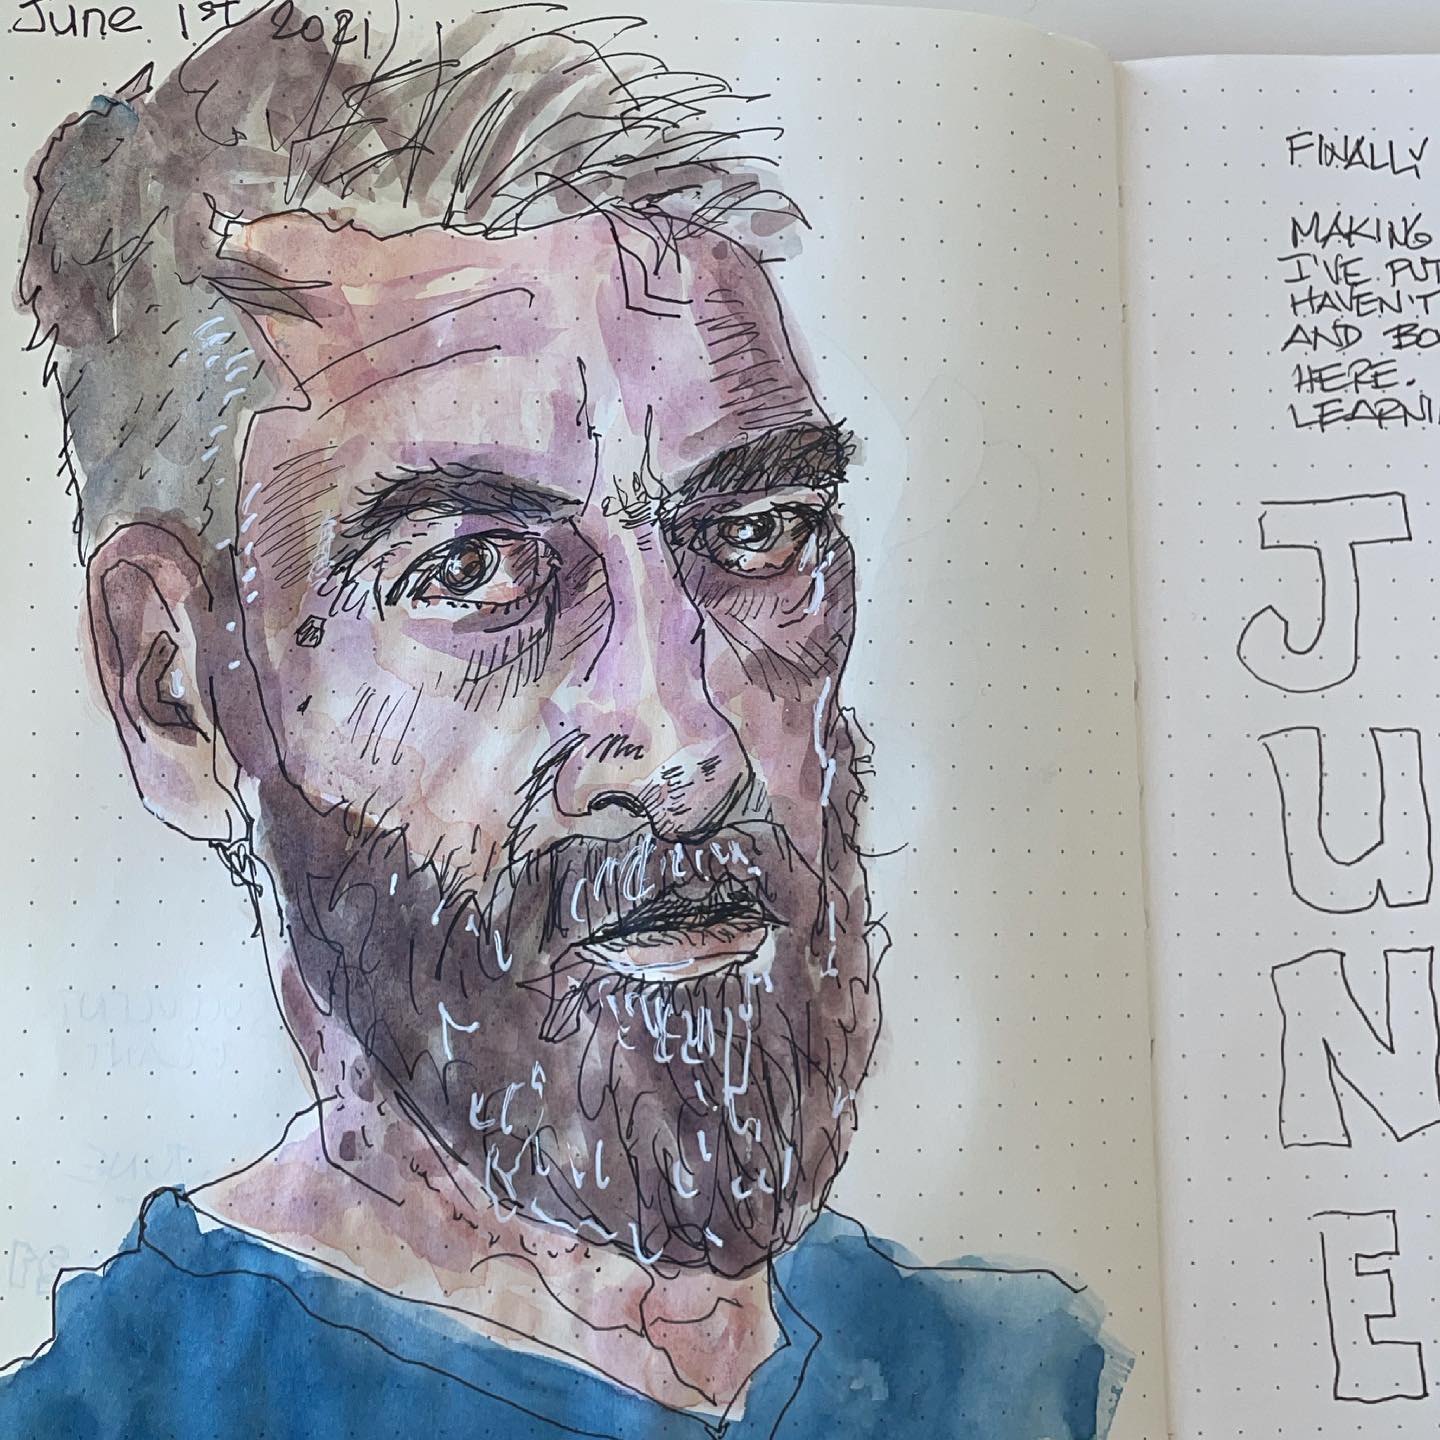 June 1st 2021
FINALLY
MAKING
I'VE PUT
HAVEN'T
AND BO
HERE.
LEARNI
JUNE